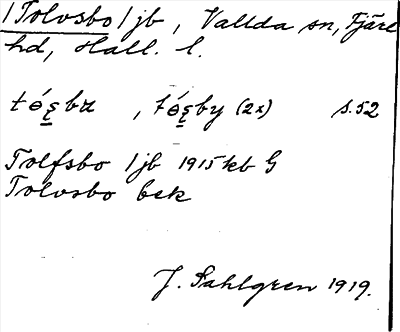 /Tolvsbo/jb, Vallda sn, Fjäre
hd, Hall. l.
tó̱ʂbu, tó̱ʂby (2x) s. 52
Tolfsbo /jb 1915 kb G
Tolvsbo bsk
J. Sahlgren 1919.